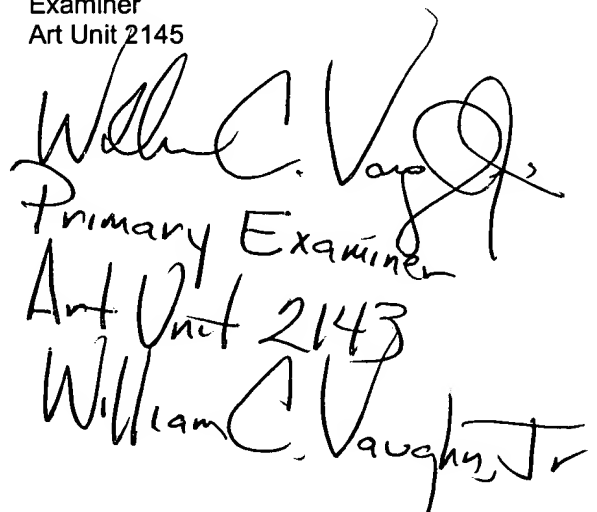 Examiner
Art Unit 2145
William C. Vaughn, Jr.
Primary Examiner
Art Unit 2143
William C. Vaughn, Jr